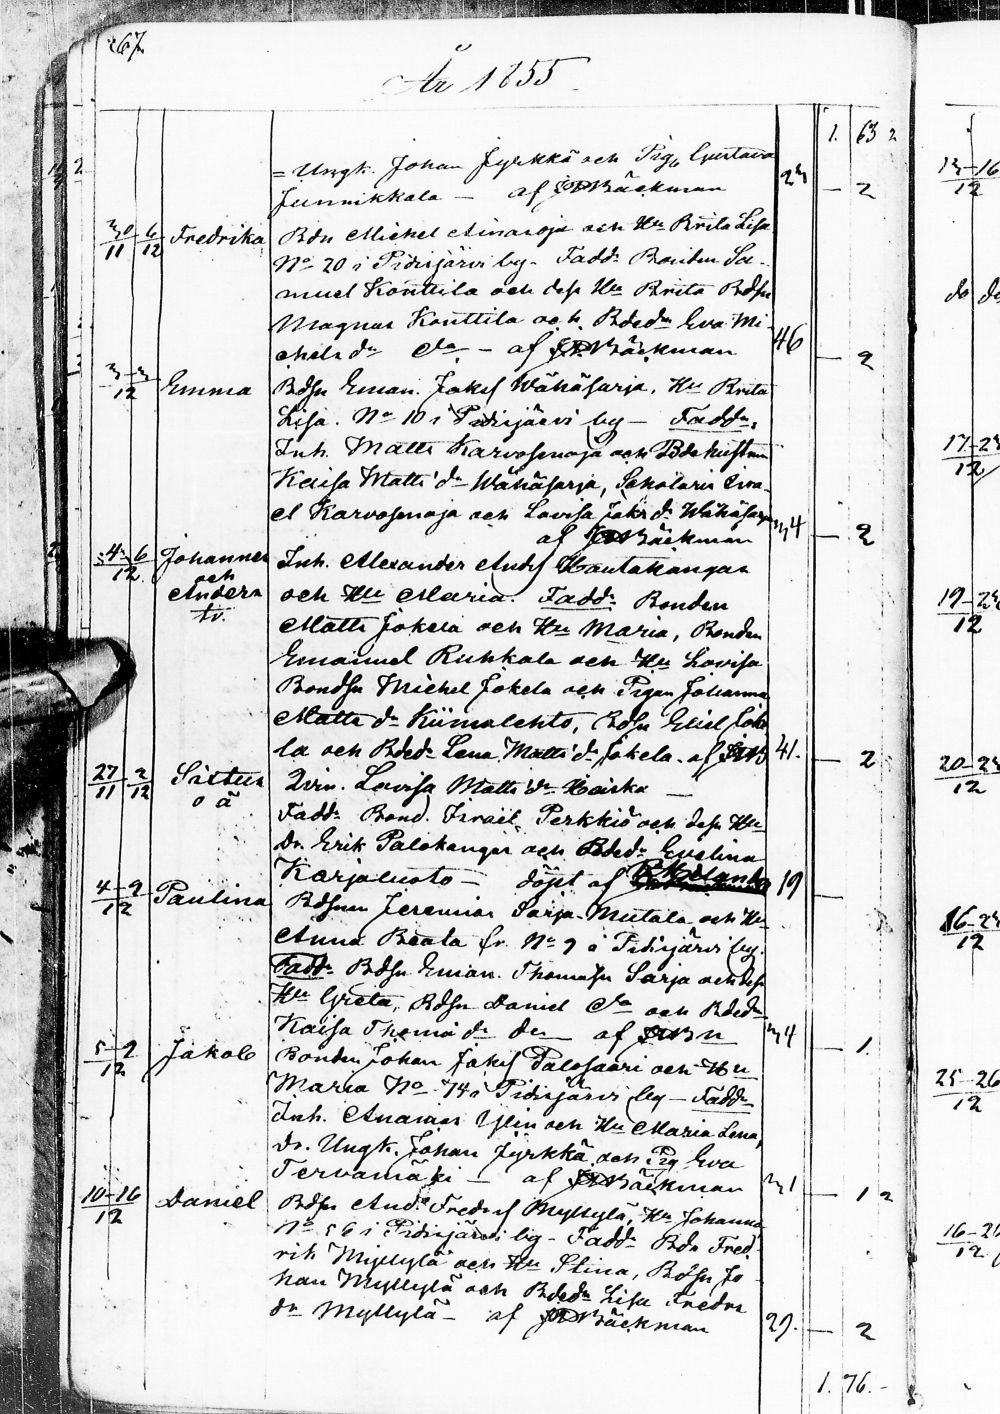 267.
År 1855
1. 63 2
= Ungk. Johan Jyrkkä och Pig. Gustava
Junnikkala — af Bäckman 23 — 2
30/11 6/12 Fredrika Bdn Michel Ainasoja och Hu Brita Lisa
No 20 i Pidisjärvi by - Fadd. Bonden Sa-
muel Konttila och dess Hu Brita Bdsn
Magnus Konttila och Bdedn Eva Mi-
chels dr do — af Bäckman 46 — 2
3-3/12 Emma Bdsn Eman. Jakss Wähäsarja, Hu Brita
Lisa. No 10 i Pidisjärvi by — Fadd.
Inh. Matts Karvosenoja och Bdehustrun
Kaisa Matts dr Wähäsarja,
el Karvosenoja och Lovisa Jaks dr Wähäsarja 34 — 2
af Bäckman
4-6/12 Johannes Inh. Alexander Andss Hautakangas
och
Anders och Hu Maria. Fadd. Bonden
tv. Matts Jokela och Hu Maria, Bonden
Emanuel Ruhkala och Hu Lovisa
Bondsn Michel Jokela och Pigan Johanna
Matts dr Kiimalehto, Bdsn Elis Joke-
la och Bded. Lena Matts dr Jokela. af 41. — 2
27/11 2/12 Sixtus Qvin. Lovisa Matts dr Haiska —
o ä
Fadd. Bond. Israel Perkkiö och dess Hu
Dr. Erik Palokangas och Bded. Evelina
Karjaluoto — döpt af 19 —
4-9/12 Paulina Bdsnn Jeremias Sarja-Mutala och Hu
Anna Beata fr. No 9 i Pidisjärvi by.
Fadd. Bdsn Eman. Thomass Sarja och dess
Hu Greta, Bdsn Daniel do och Bded.
Kaisa Thoma dr do af 34 — 1.
5-9/12 Jakob Bonden Johan Jakss Palosaari och Hu
Maria No 74 i Pidisjärvi by — Fadd.
Inh. Ananias Ylin och Hu Maria Lena,
Dr. Ungk. Johan Jyrkkä och Pig Eva
Tervamäki — af Bäckman 31 — 1 2
10-16/12 Daniel Bdsn And. Fredrss Myllylä, Hu Johanna
No 56 i Pidisjärvi by - Fadd. Bdn Fred-
rik Myllylä och Hu Stina, Bdsn Jo-
han Myllylä och Bdedn Lisa Fredrs
dr Myllylä — af Bäckman 29. — 2
1. 76. -
13-16/12
do do
17-23/12
19-23/12
20-23/12
16-23/12
25-26/12
16-26/12